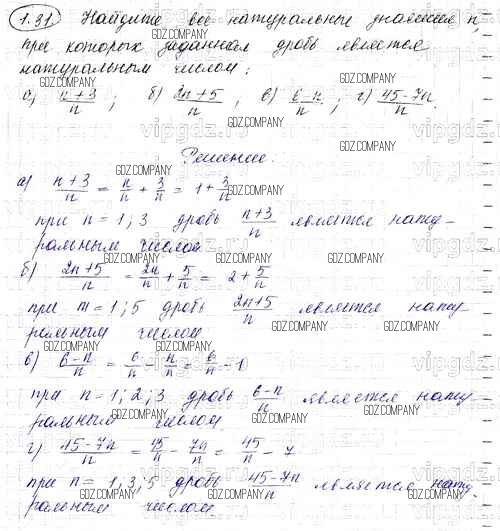 1.31 Найдите все натуральные значения n,
при которых заданная дробь является
натуральным числом:
а) (n+3)/n ; б) (2n+5)/n , в) (6-n)/n ; г) (45-7n)/n .
Решение.
а) (n+3)/n = n/n + 3/n = 1 + 3/n
при n = 1; 3 дробь (n+3)/n является нату-
ральным числом.
б) (2n+5)/n = 2n/n + 5/n = 2 + 5/n
при m = 1; 5 дробь (2n+5)/n является нату-
ральным числом
в) (6-n)/n = 6/n - n/n = 6/n - 1
при n = 1; 2; 3 дробь (6-n)/n является нату-
ральным числом.
г) (45-7n)/n = 45/n - 7n/n = 45/n - 7
при n = 1, 3; 5 дробь (45-7n)/n является нату-
ральным числом
GDZ.COMPANY
vipgdz.ru